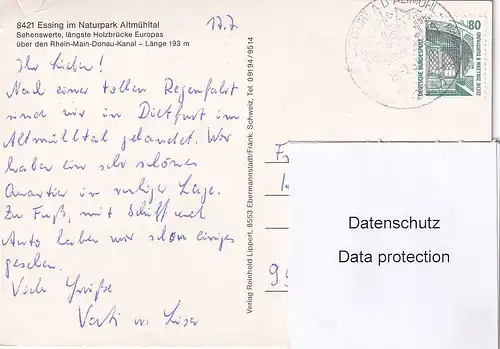 8421 Essing im Naturpark Altmühltal
Sehenswerte, längste Holzbrücke Europas
über den Rhein-Main-Donau-Kanal – Länge 193 m
17.7.
Ihr Lieben!
Nach einer tollen Regenfahrt
sind wir in Dietfurt im
Altmühltal gelandet. Wir
haben ein sehr schönes
Quartier in ruhiger Lage.
Zu Fuß, mit Schiff und
Auto haben wir schon einiges
gesehen.
Viele Grüße
Verlag Reinhold Lippert, 8553 Ebermannstadt/Fränk. Schweiz, Tel. 09194/9514
DEUTSCHE BUNDESPOST
80
ZECHE ZOLLERN II DORTMUND
Datenschutz
Data protection